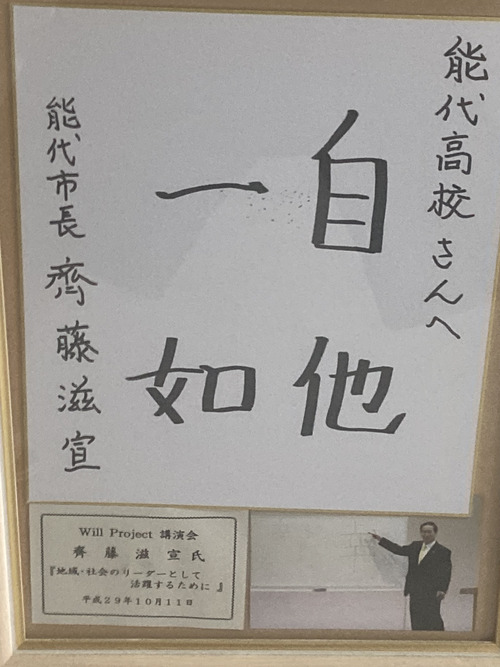 能代高校さんへ
自他
一如
能代市長 齊藤滋宣
Will Project 講演会
齊藤滋宣氏
『地域・社会のリーダーとして
活躍するために』
平成29年10月11日